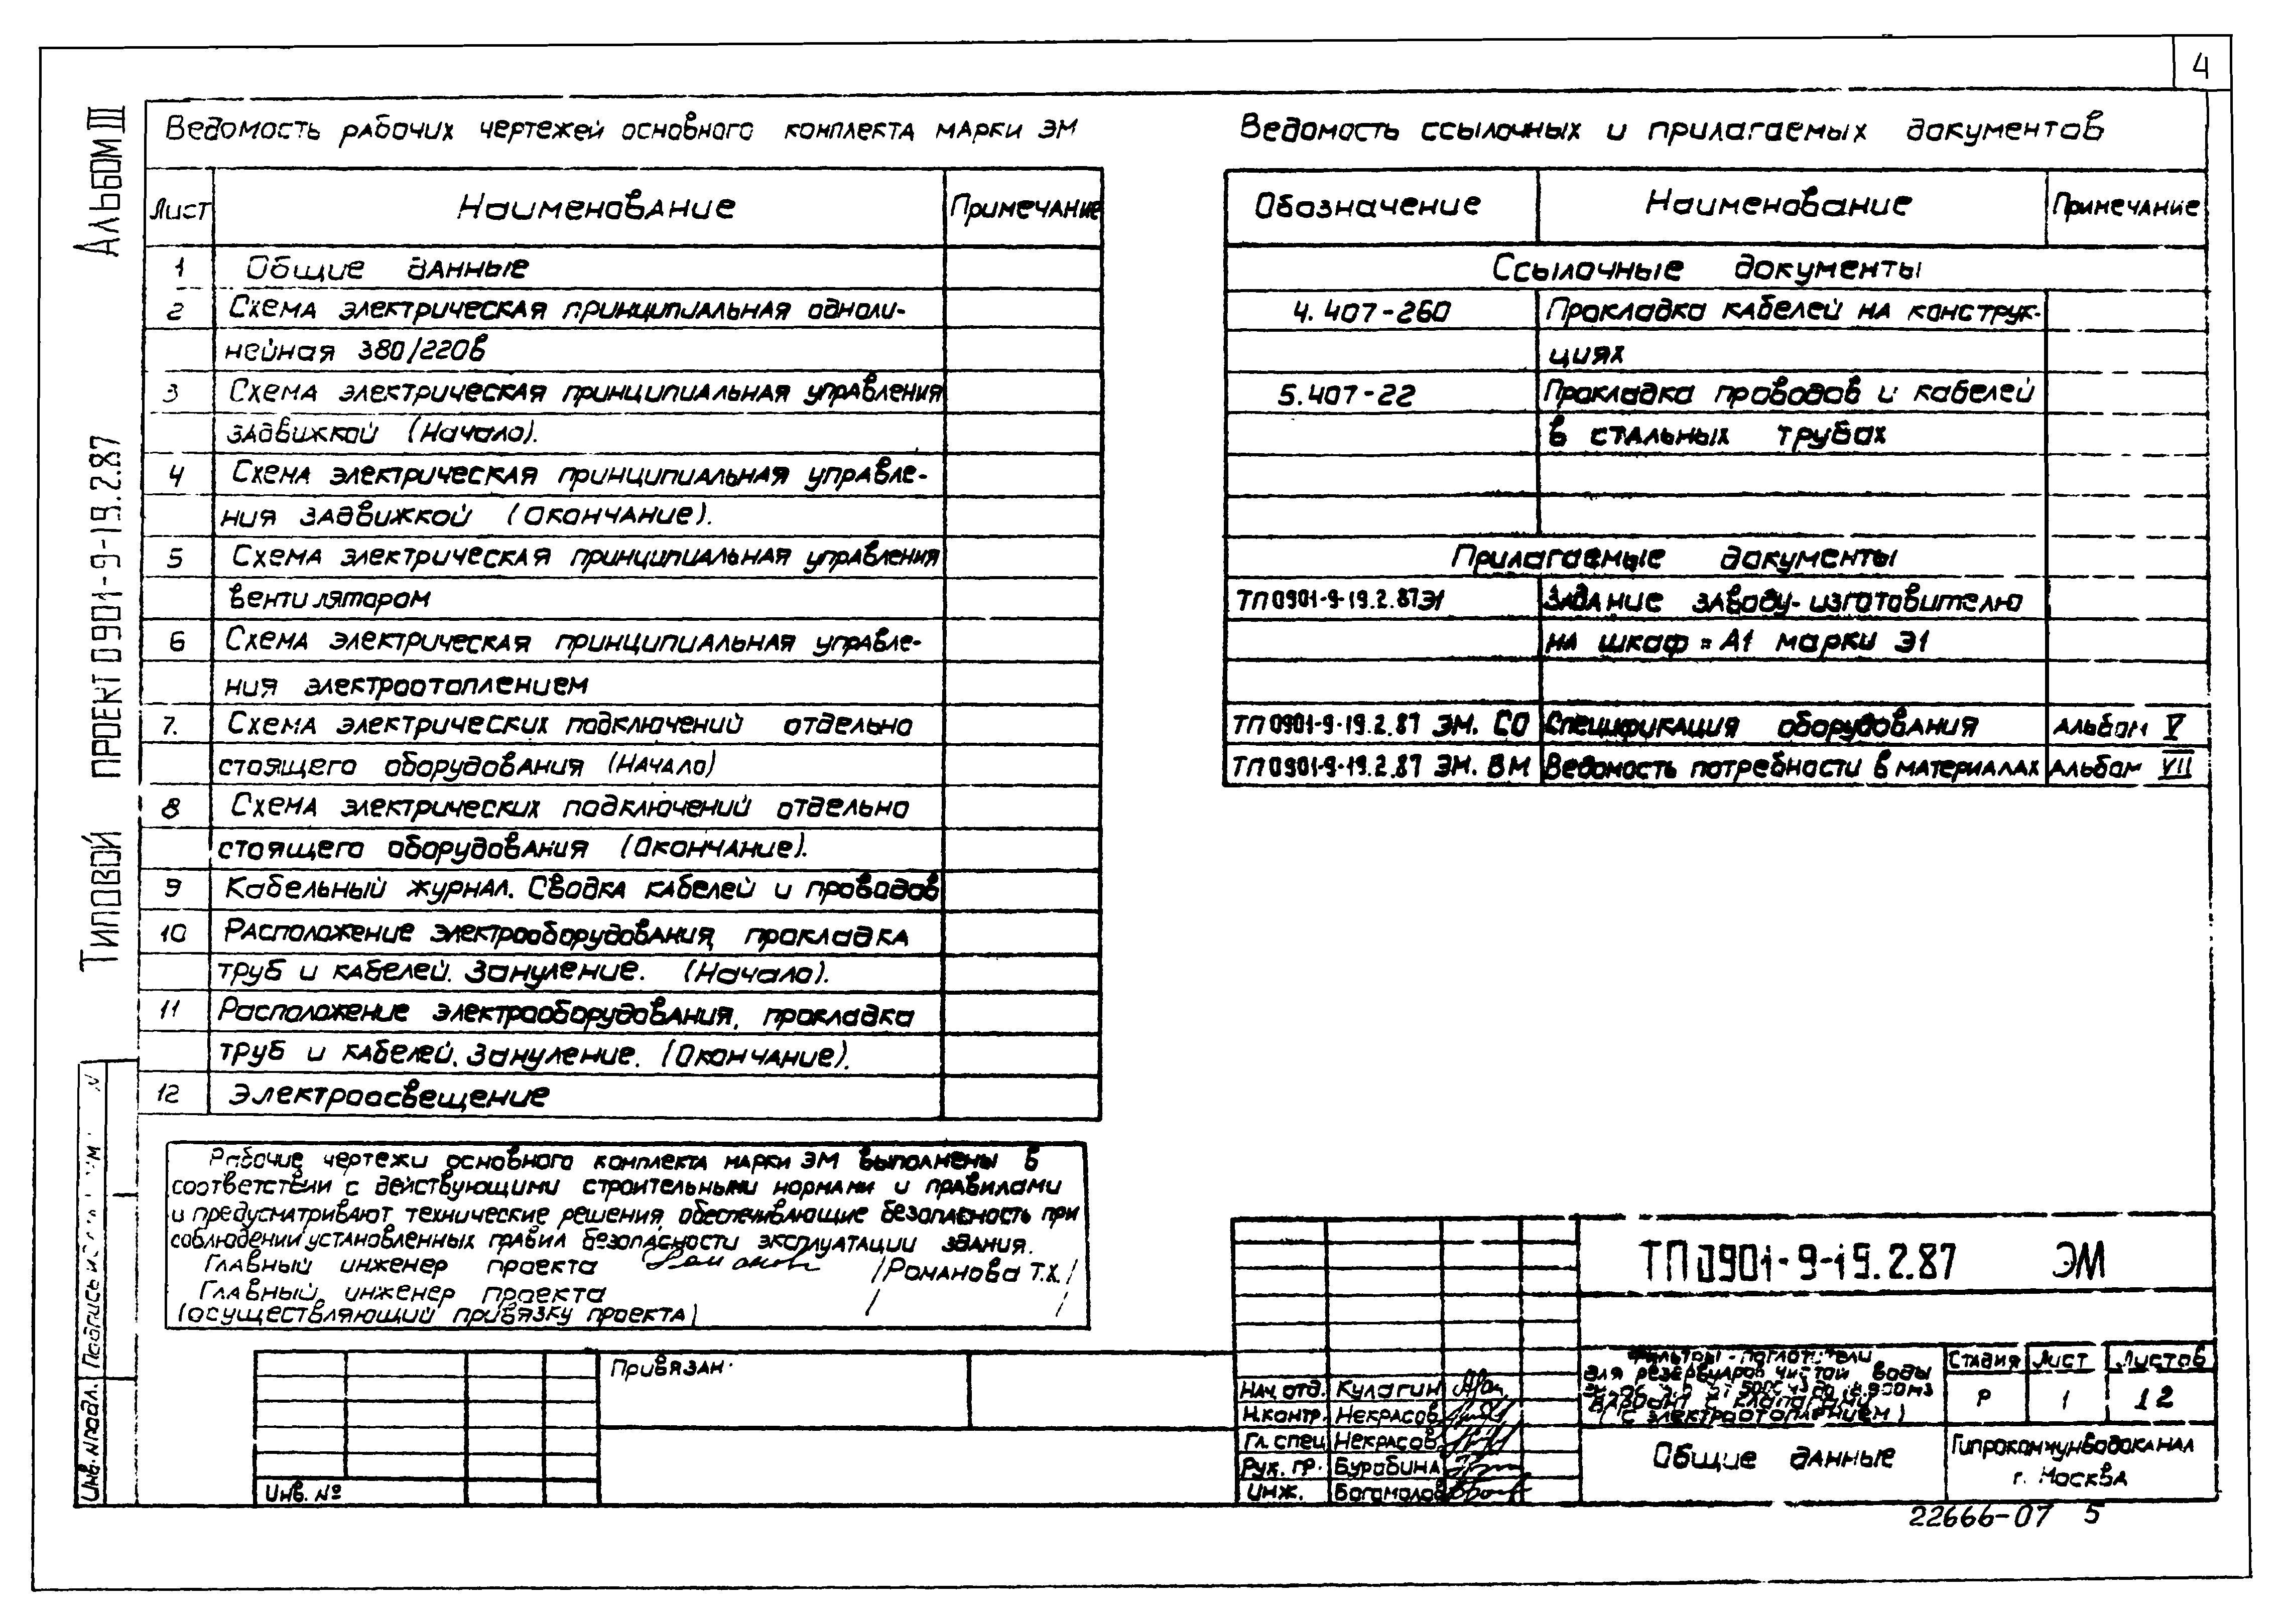 4
Альбом III
Типовой проект 0901-9-19.2.87
Ведомость рабочих чертежей основного комплекта марки ЭМ
Лист Наименование Примечание
1 Общие данные
2 Схема электрическая принципиальная одноли-
нейная 380/220в
3 Схема электрическая принципиальная управления
задвижкой (Начало).
4 Схема электрическая принципиальная управле-
ния задвижкой (окончание).
5 Схема электрическая принципиальная управления
вентилятором
6 Схема электрическая принципиальная управле-
ния электроотоплением
7. Схема электрических подключений отдельно
стоящего оборудования (Начало)
8 Схема электрических подключений отдельно
стоящего оборудования (Окончание).
9 Кабельный журнал. Сводка кабелей и проводов
10 Расположение электрооборудования, прокладка
труб и кабелей. Зануление. (Начало).
11 Расположение электрооборудования, прокладка
труб и кабелей. Зануление. (Окончание).
12 Электроосвещение
Ведомость ссылочных и прилагаемых документов
Обозначение Наименование Примечание
Ссылочные документы
4.407-260 Прокладка кабелей на конструк-
циях
5.407-22 Прокладка проводов и кабелей
в стальных трубах
Прилагаемые документы
ТП0901-9-19.2.87Э1 Задание заводу-изготовителю
на шкаф = А1 марки Э1
ТП0901-9-19.2.87 ЭМ. СО Спецификация оборудования Альбом V
ТП0901-9-19.2.87 ЭМ. ВМ Ведомость потребности в материалах Альбом VII
Рабочие чертежи основного комплекта марки ЭМ выполнены в
соответствии с действующими строительными нормами и правилами
и предусматривают технические решения, обеспечивающие безопасность при
соблюдении установленных правил безопасности эксплуатации здания.
Главный инженер проекта /Романова Т.Х./
Главный инженер проекта / /
(осуществляющий привязку проекта)
Привязан:
Инв. №
Инв. № подл. Подпись и
ТП0901-9-19.2.87 ЭМ
Фильтры-поглотители
для резервуаров чистой воды
вариант с клапанами
(с электроотоплением)
Стадия Лист Листов
Р 1 12
Нач. отд. Кулагин
Н.контр. Некрасов
Гл. спец Некрасов
Рук. гр. Бурабина
Инж. Богомолов
Общие данные
Гипрокоммунводоканал
г. Москва
22666-07 5